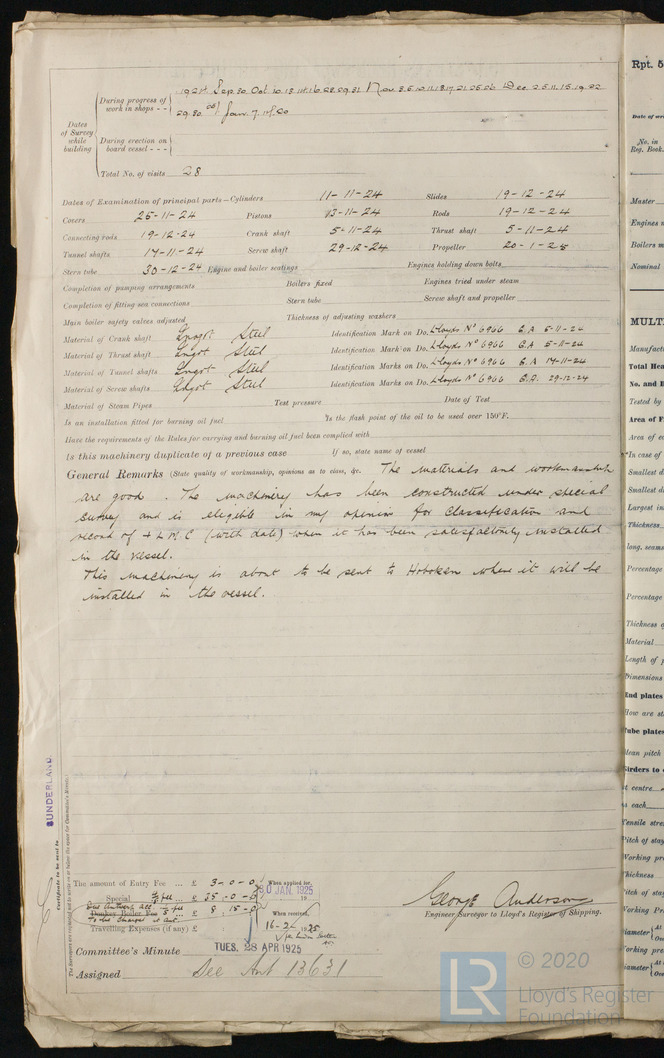 1924 Sep 30 Oct 10.13.14.16.28.29.31 Nov 3.5.10.11.18.17.21.25.26 Dec 2.5.11.15.19.22
During progress of work in shops - -
29.30 Jan. 7.14.20
Dates of Survey while building
During erection on board vessel - - -
Total No. of visits 28
Dates of Examination of principal parts—Cylinders 11-11-24 Slides 19-12-24
Covers 25-11-24 Pistons 13-11-24 Rods 19-12-24
Connecting rods 19-12-24 Crank shaft 5-11-24 Thrust shaft 5-11-24
Tunnel shafts 14-11-24 Screw shaft 29-12-24 Propeller 20-1-25
Stern tube 30-12-24 Engine and boiler seatings Engines holding down bolts
Completion of pumping arrangements Boilers fixed Engines tried under steam
Completion of fitting sea connections Stern tube Screw shaft and propeller
Main boiler safety valves adjusted Thickness of adjusting washers
Material of Crank shaft Ingot Steel Identification Mark on Do. Lloyds No 6966 G.A 5-11-24
Material of Thrust shaft Ingot Steel Identification Mark on Do. Lloyds No 6966 G.A 5-11-24
Material of Tunnel shafts Ingot Steel Identification Marks on Do. Lloyds No 6966 G.A 14-11-24
Material of Screw shafts Ingot Steel Identification Marks on Do. Lloyds No 6966 G.A. 29-12-24
Material of Steam Pipes Test pressure Date of Test
Is an installation fitted for burning oil fuel Is the flash point of the oil to be used over 150°F.
Have the requirements of the Rules for carrying and burning oil fuel been complied with
Is this machinery duplicate of a previous case If so, state name of vessel
General Remarks (State quality of workmanship, opinions as to class, &c. The materials and workmanship
are good. The machinery has been constructed under special
survey and is eligible in my opinion for classification and
record of + L.M.C (with date) when it has been satisfactorily installed
in the vessel.
This machinery is about to be sent to Hoboken where it will be
installed in the vessel.
SUNDERLAND
Certificate to be sent to
The amount of Entry Fee ... £ 3-0-0 When applied for,
30 JAN. 1925
Special ... £ 35-0-0
Donkey Boiler Fee ... £ 8.15-0 When received,
Travelling Expenses (if any) £ 16-2- 1925
George Anderson
Engineer Surveyor to Lloyd's Register of Shipping.
Committee's Minute TUES. 28 APR 1925
Assigned See Ant 13631
LR
© 2020
Lloyd's Register
Foundation
Rpt. 5
Date of
No. in
Reg. Book.
Master
Engines
Boilers
Nominal
MULT
Total Hea
No. and
Tested by
Area of
Area of
In case of
Smallest
Smallest
Largest
Thickness
long. seams
Percentage
Percentage
Thickness
Material
Length of
Dimensions
End plates
How are
Tube plates
Mean pitch
Girders to
at centre
each
Tensile
Pitch of
Working
Thickness
Pitch of
Working